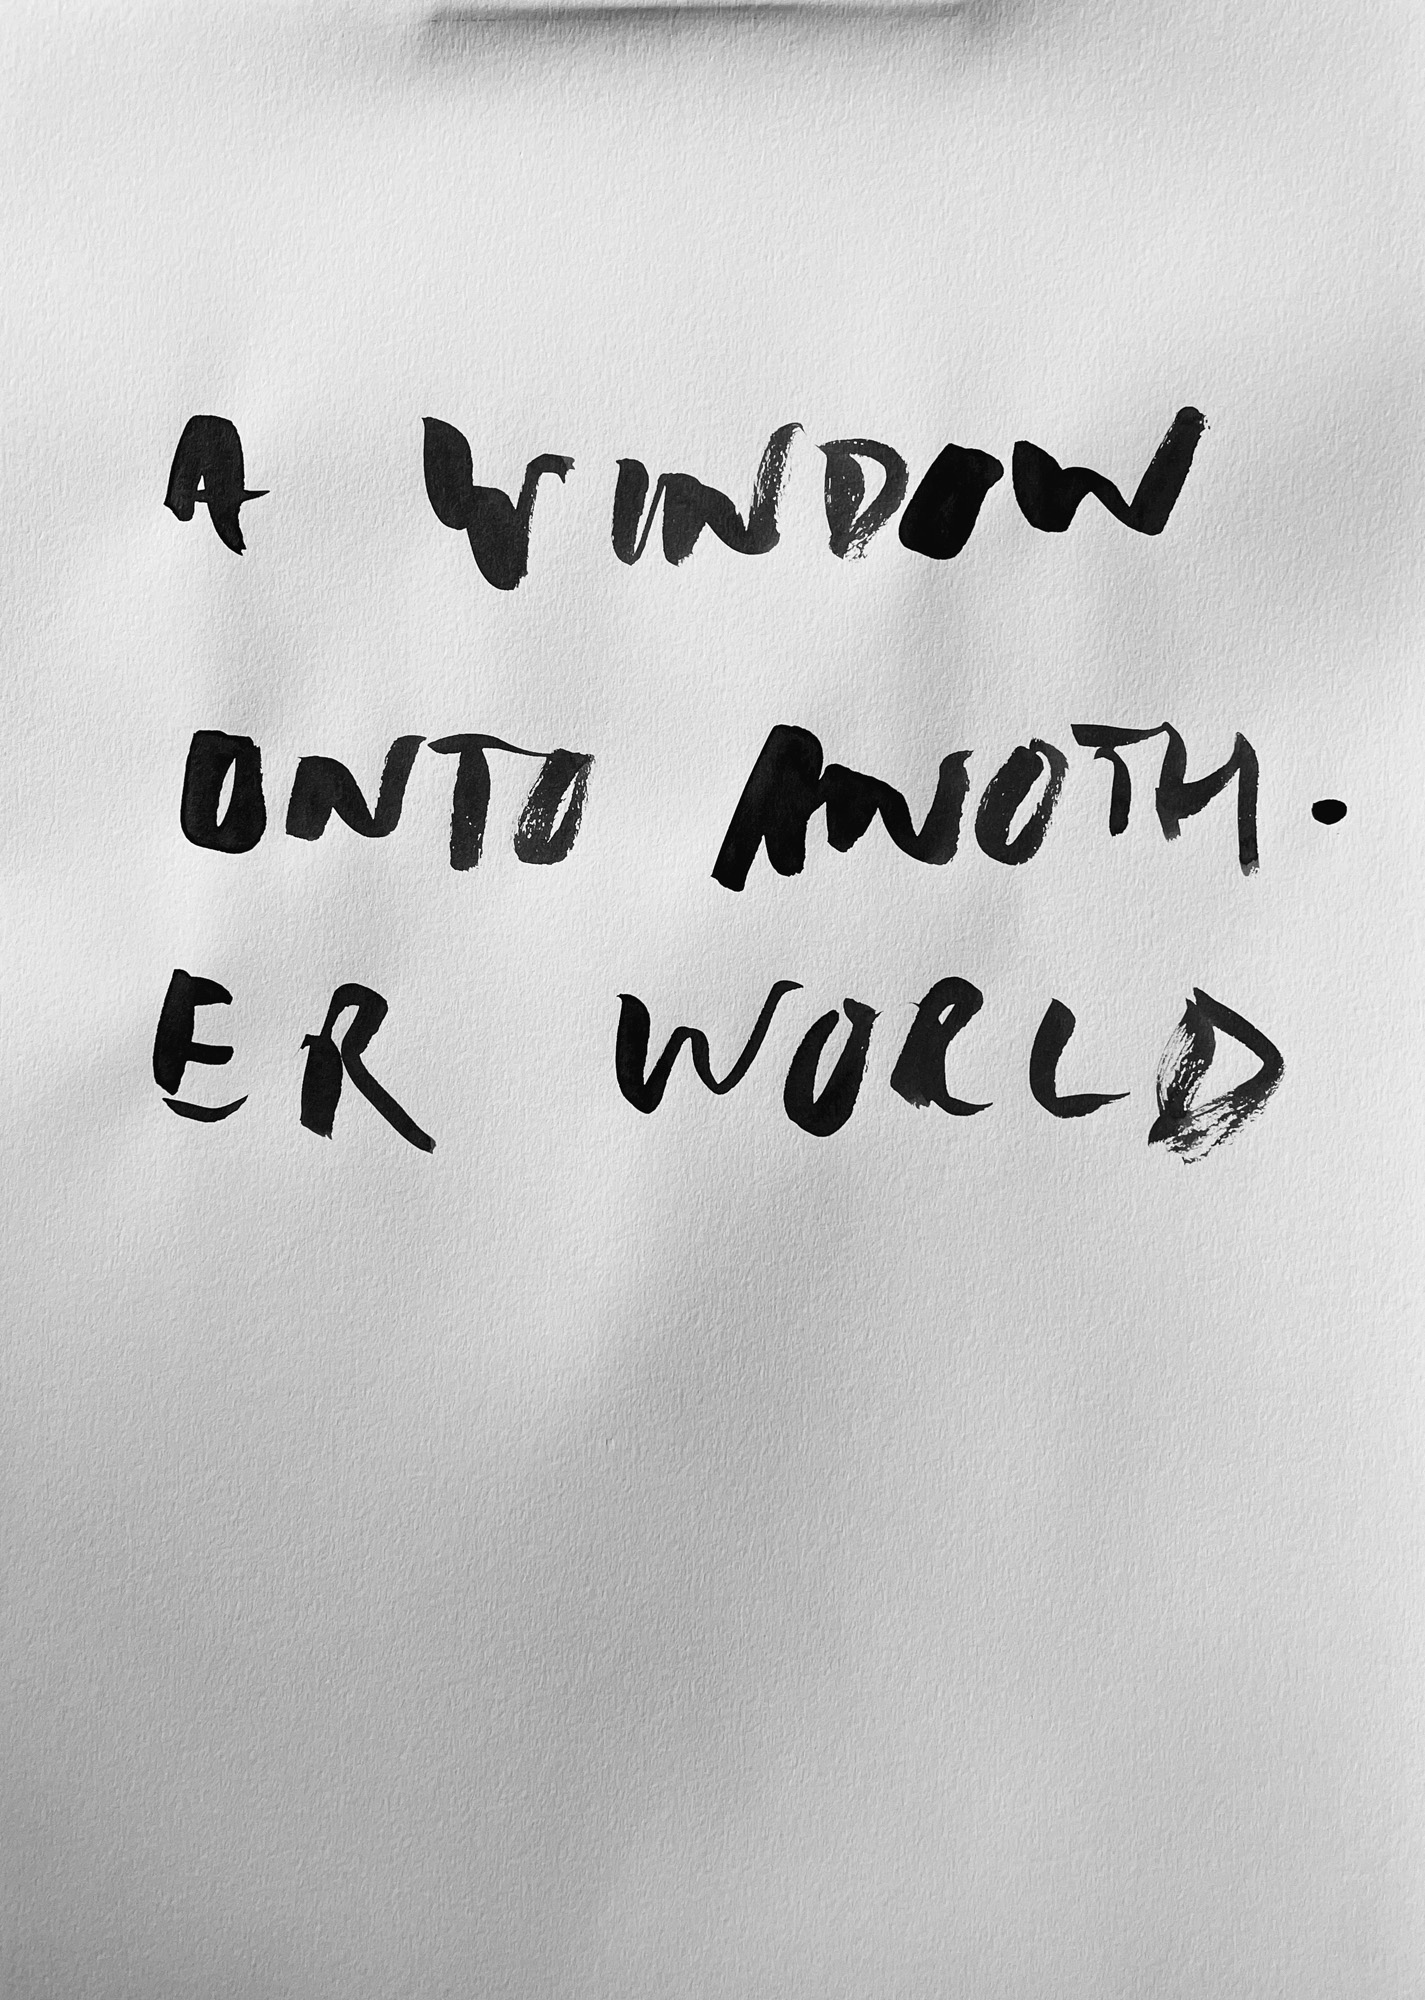 A WINDOW
ONTO ANOTH.
ER WORLD